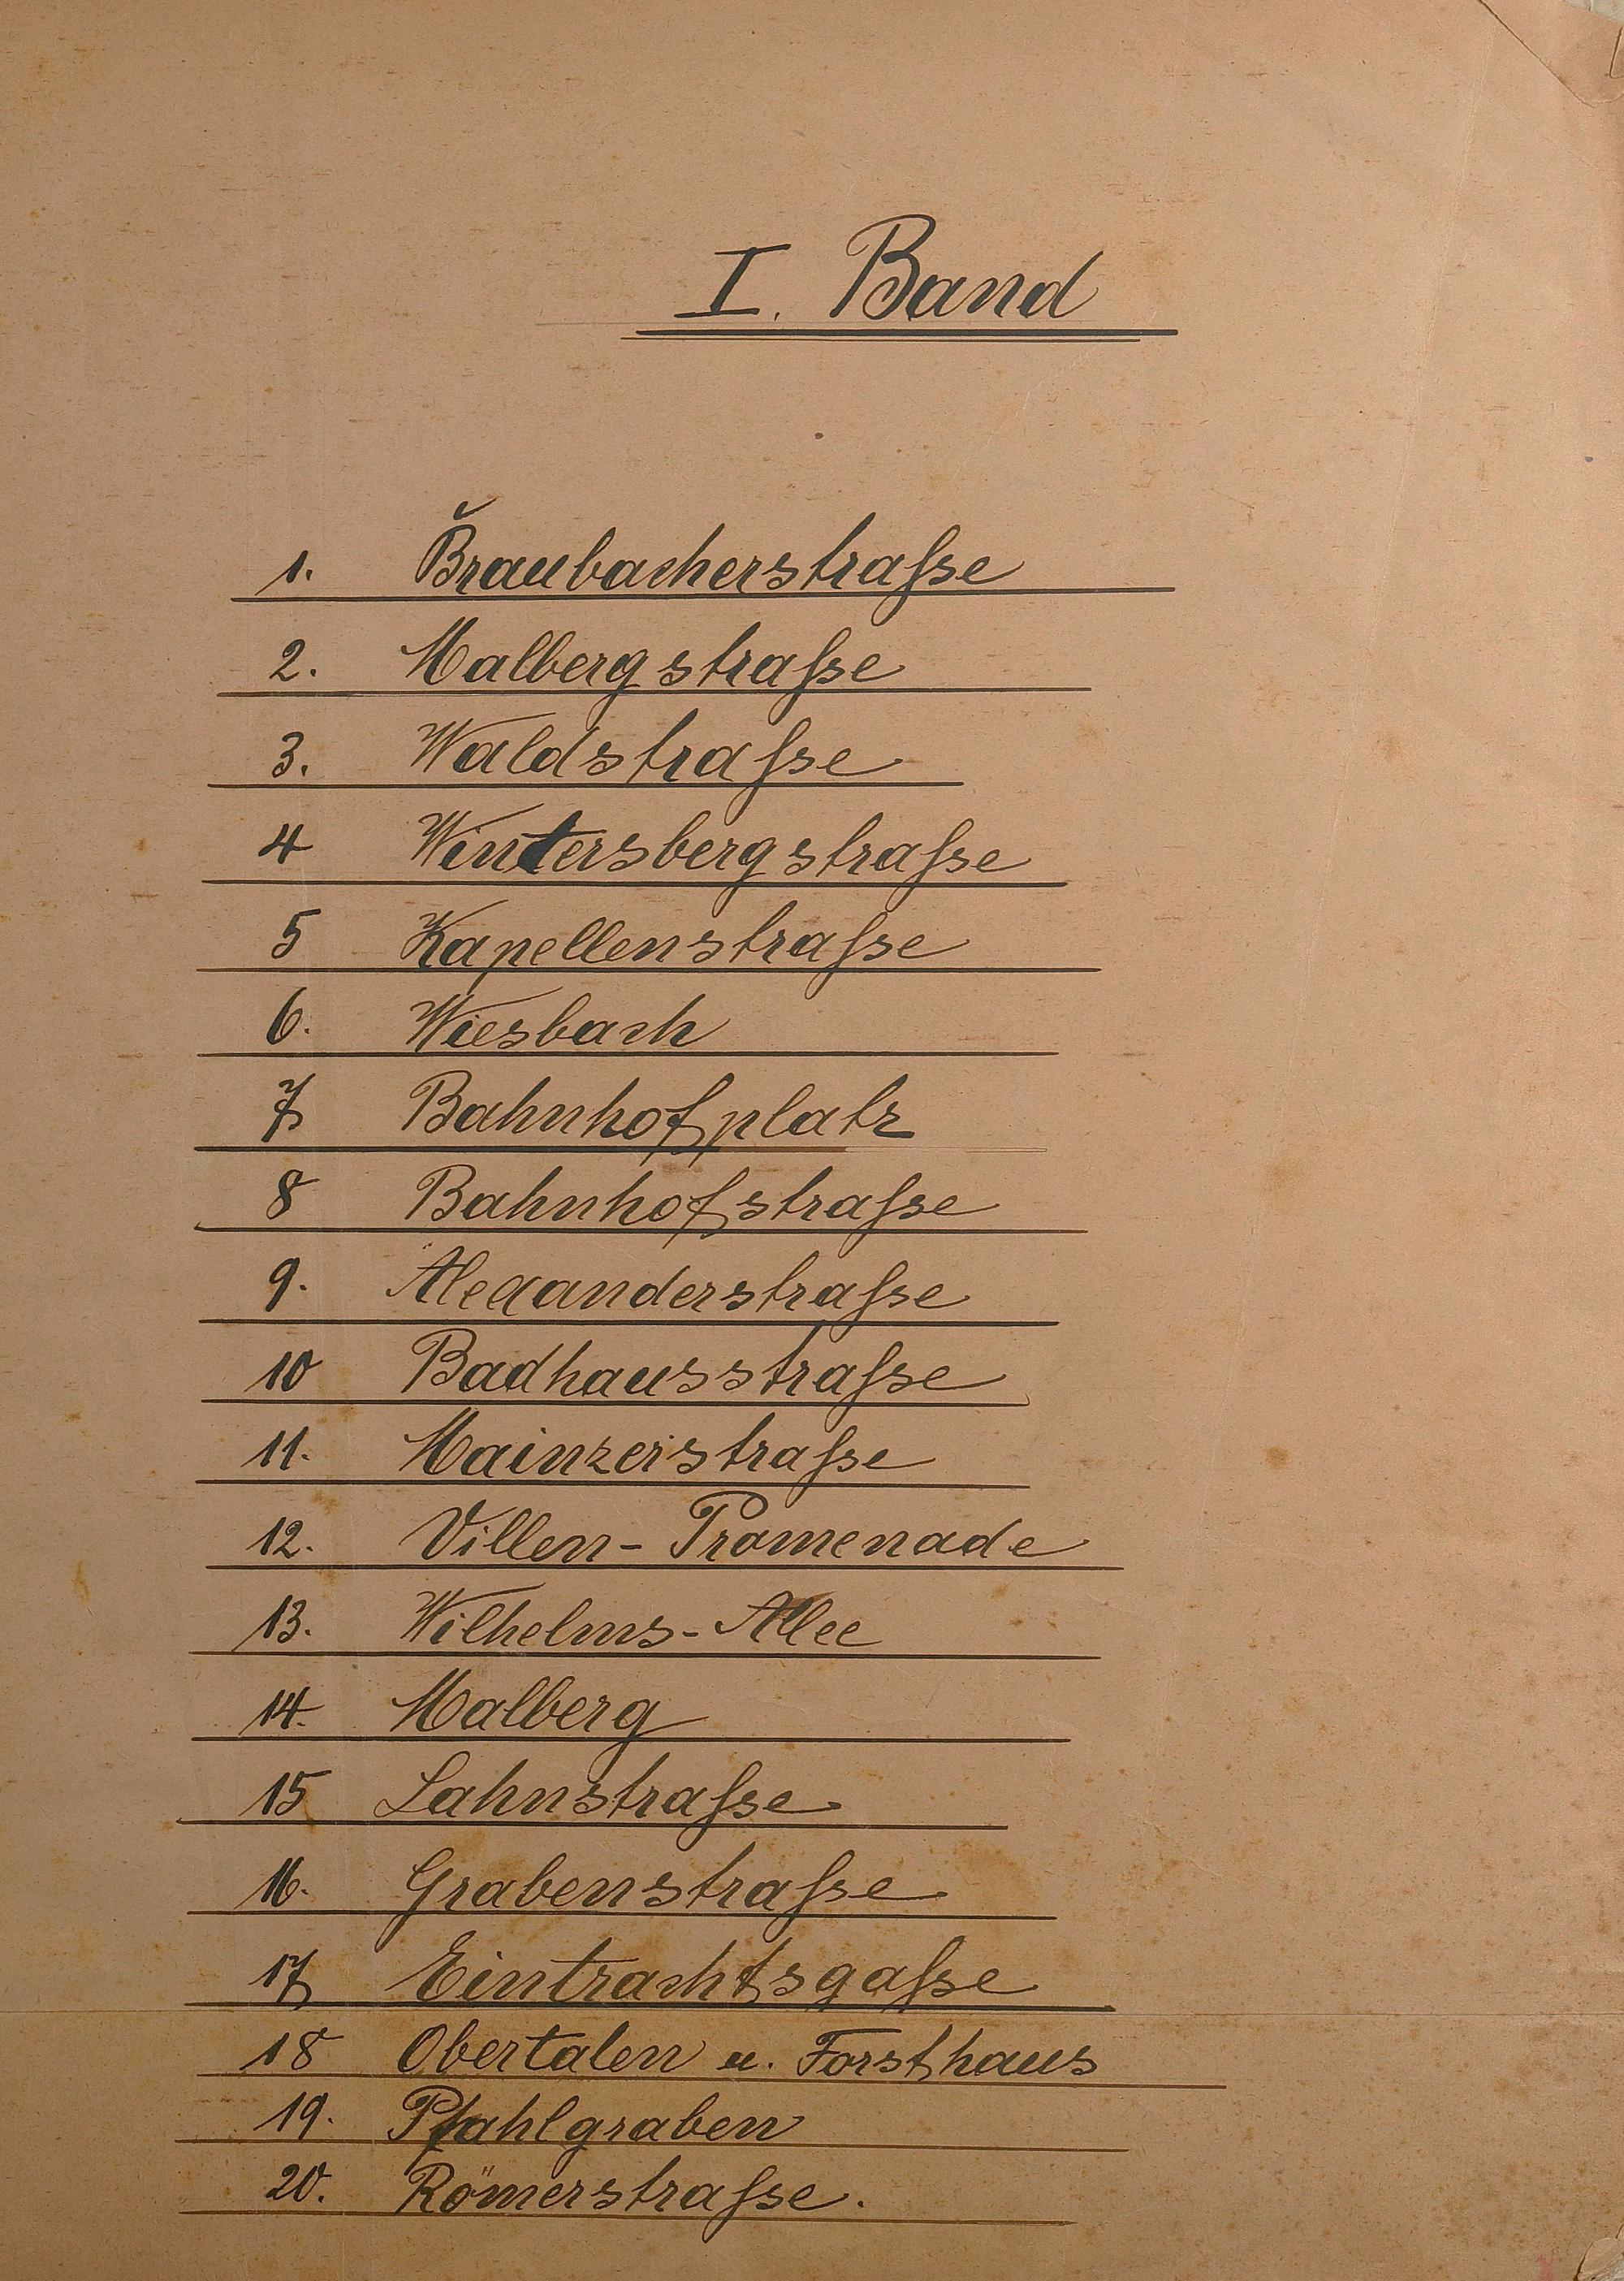 I. Band
1. Braubacherstraſse
2. Malbergstraſse
3. Waldstraſse
4 Wintersbergstraſse
5 Kapellenstraſse
6. Wiesbach
7 Bahnhofplatz
8 Bahnhofstraſse
9. Alexanderstraſse
10 Badhausstraſse
11. Mainzerstraſse
12. Villen-Promenade
13. Wilhelms-Allee
14. Malberg
15 Lahnstraſse
16. Grabenstraſse
17 Eintrachtsgaſse
18 Obertalen u. Forsthaus
19. Pfahlgraben
20. Römerstraſse.